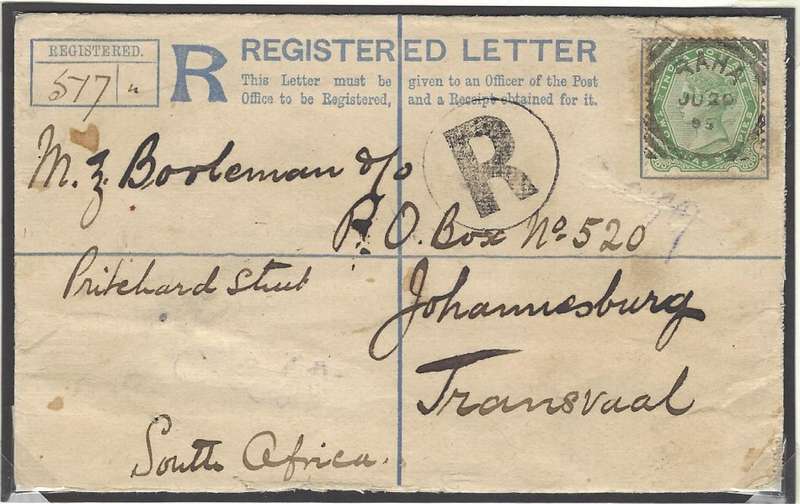 REGISTERED.
517
R
REGISTERED LETTER
This Letter must be given to an Officer of the Post
Office to be Registered, and a Receipt obtained for it.
JU 20
95
R
M. Z. Booleman c/o
P. O. Box No. 520
Pritchard Street
Johannesburg
Transvaal
South Africa.